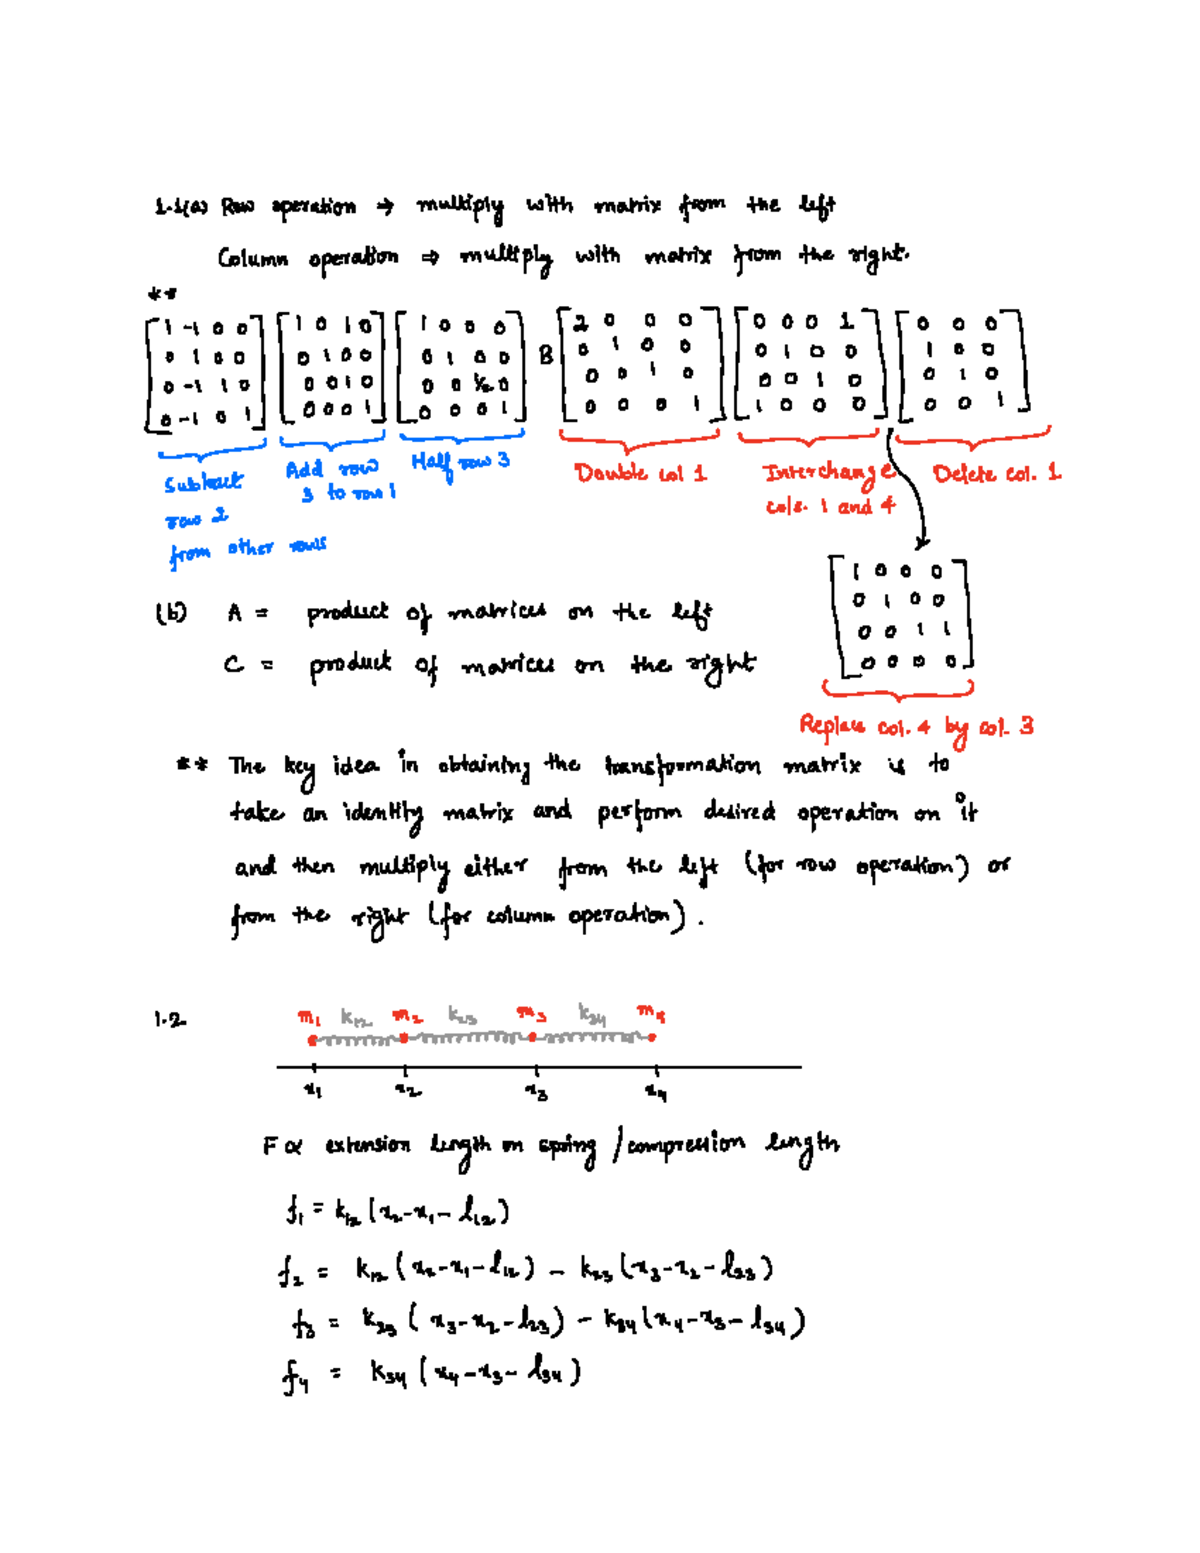 1.1(a) Row operation → multiply with matrix from the left
Column operation ⇒ multiply with matrix from the right.
**
[1 -1 0 0] [1 0 1 0] [1 0 0 0] [2 0 0 0] [0 0 0 1] [0 0 0]
[0 1 0 0] [0 1 0 0] [0 1 0 0] B [0 1 0 0] [0 1 0 0] [1 0 0]
[0 -1 1 0] [0 0 1 0] [0 0 1/2 0] [0 0 1 0] [0 0 1 0] [0 1 0]
[0 -1 0 1] [0 0 0 1] [0 0 0 1] [0 0 0 1] [1 0 0 0] [0 0 1]
Subtract
row 2
from other rows
Add row
3 to row 1
Half row 3
Double col 1
Interchange
cols. 1 and 4
Delete col. 1
[1 0 0 0]
[0 1 0 0]
[0 0 1 1]
[0 0 0 0]
Replace col. 4 by col. 3
(b) A = product of matrices on the left
C = product of matrices on the right
** The key idea in obtaining the transformation matrix is to
take an identity matrix and perform desired operation on it
and then multiply either from the left (for row operation) or
from the right (for column operation).
1.2
m₁ k₁₂ m₂ k₂₃ m₃ k₃₄ m₄
x₁ x₂ x₃ x₄
F ∝ extension length on spring / compression length
f₁ = k₁₂ (x₂-x₁-l₁₂)
f₂ = k₁₂ (x₂-x₁-l₁₂) - k₂₃ (x₃-x₂-l₂₃)
f₃ = k₂₃ (x₃-x₂-l₂₃) - k₃₄ (x₄-x₃-l₃₄)
f₄ = k₃₄ (x₄-x₃-l₃₄)